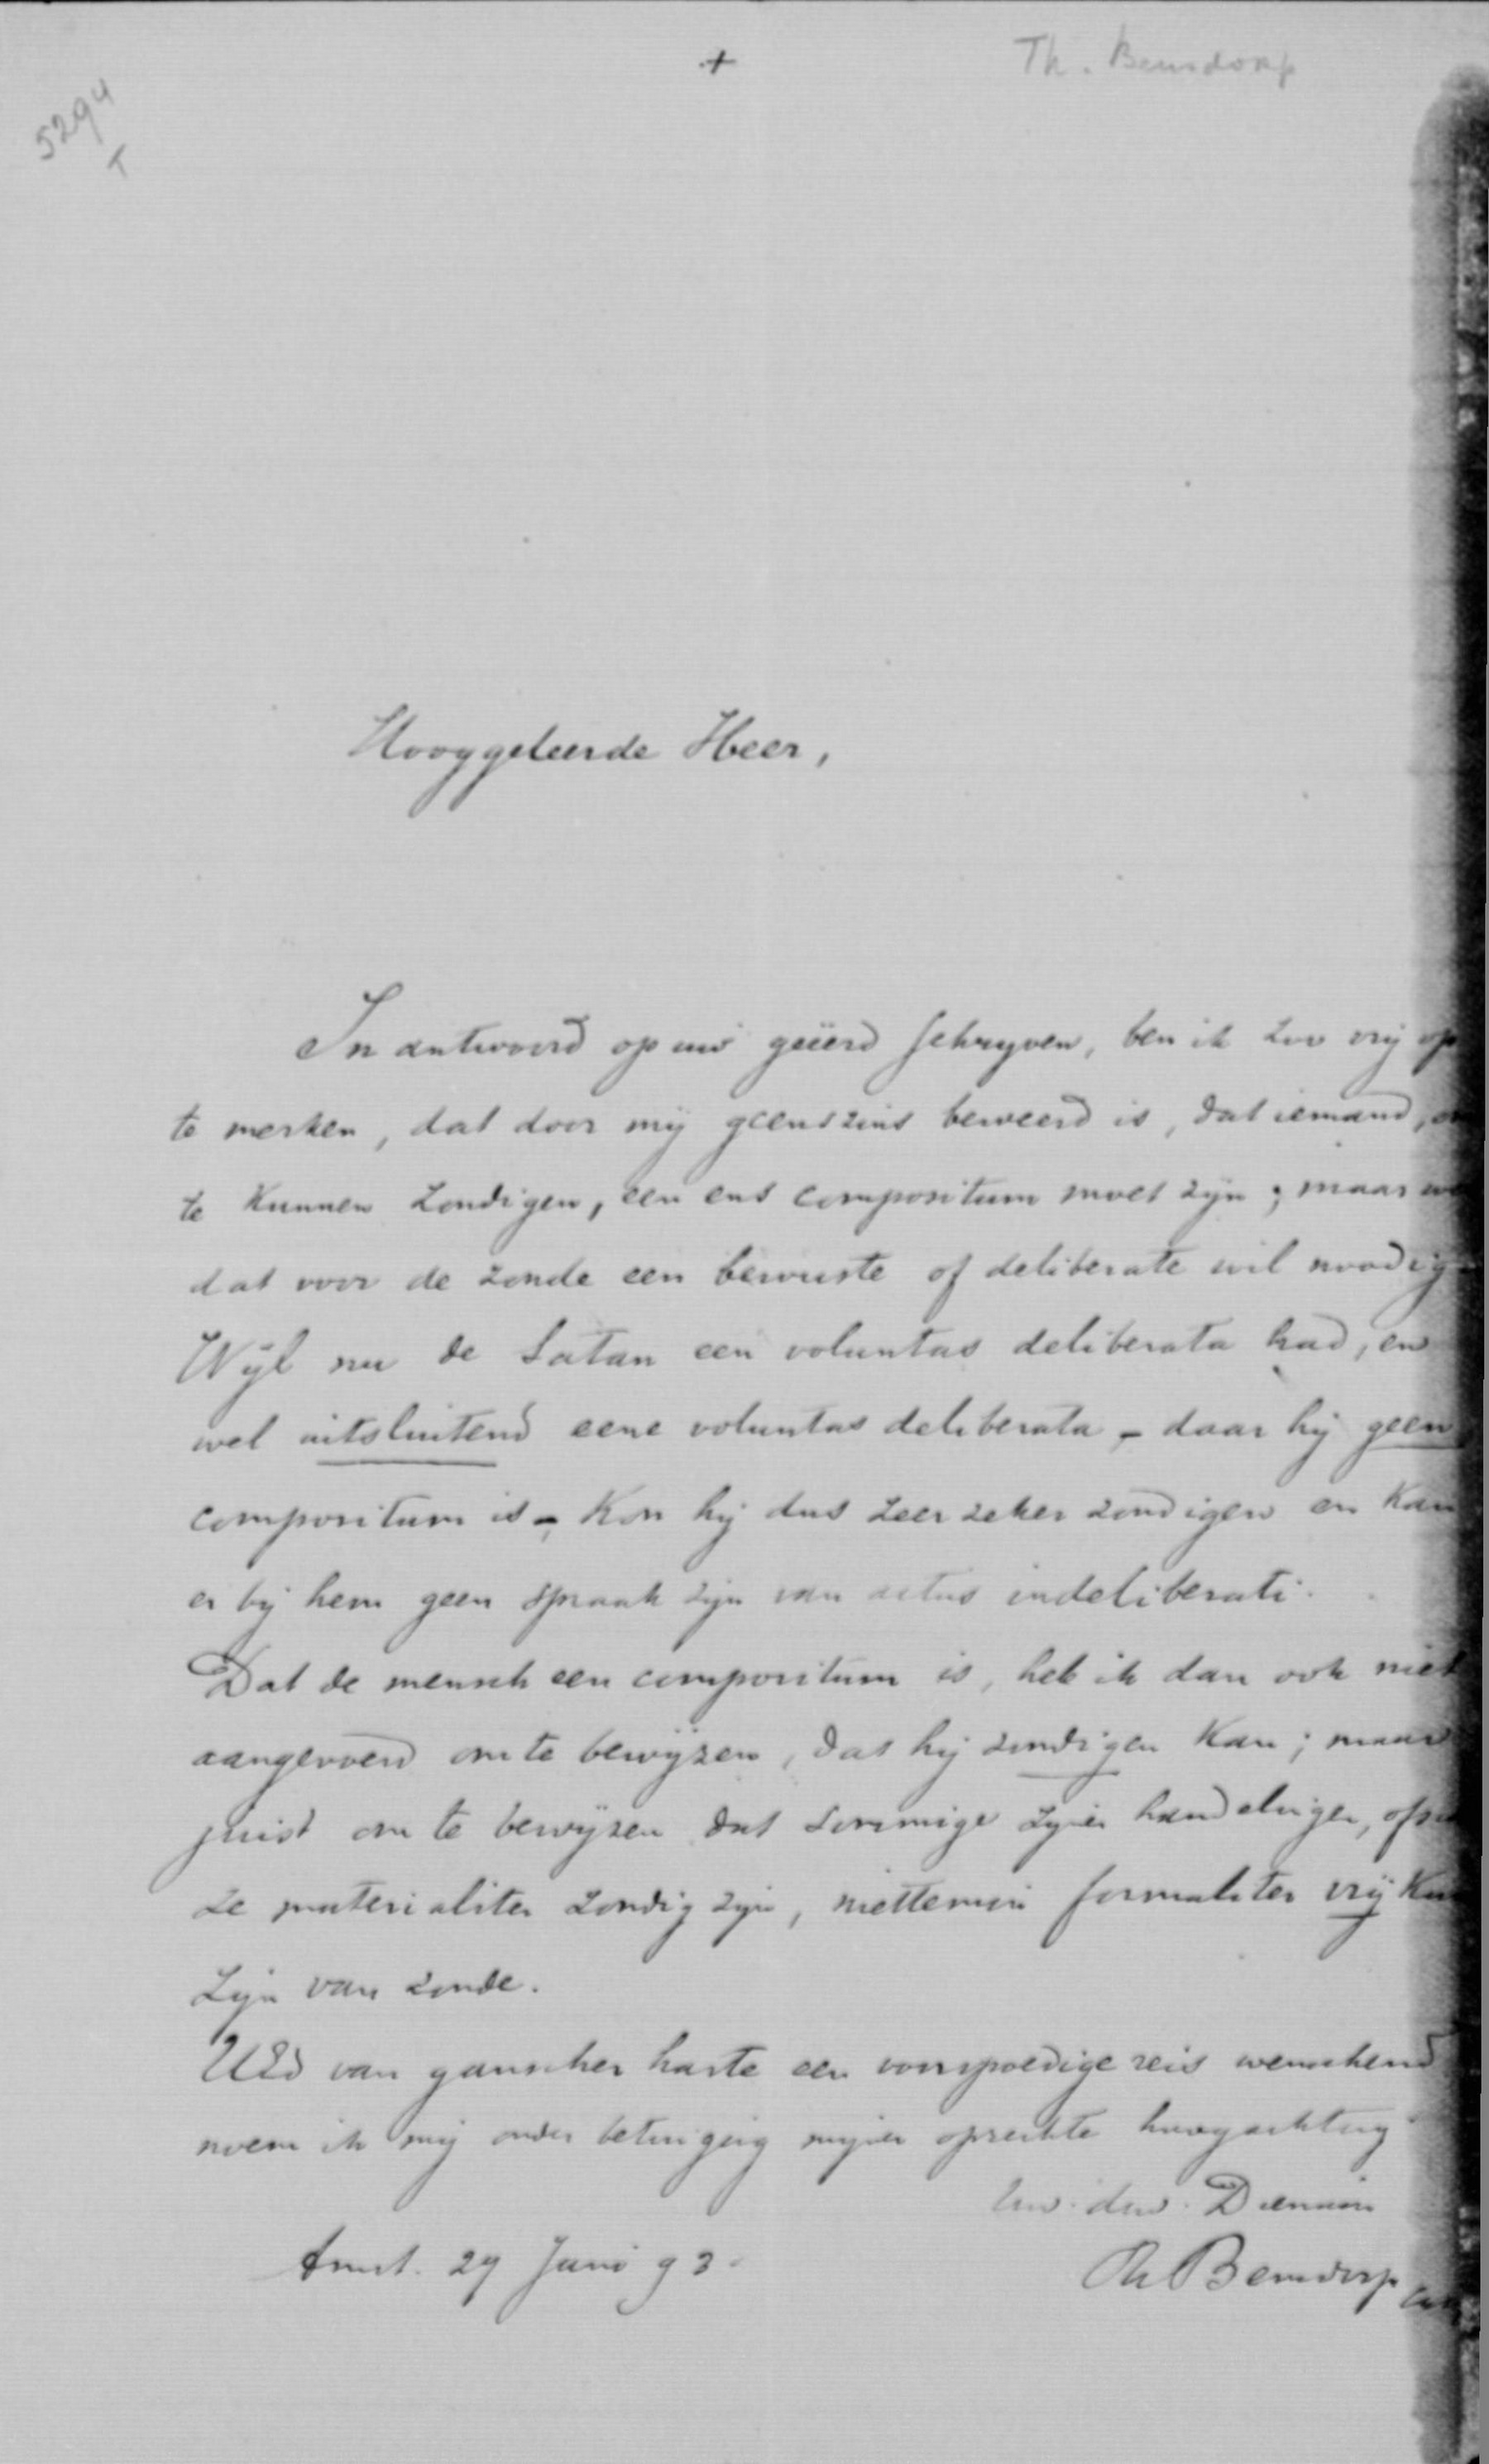 +
Th. Bensdorp
5294
T
Hooggeleerde Heer,
In antwoord op uw geëerd schryven, ben ik zoo vrij op
te merken, dat door mij geenszins beweerd is, dat iemand,
te kunnen zondigen, een ens compositum moet zijn; maar
dat voor de zonde een bewuste of deliberate wil noodig
Wijl nu de Satan een voluntas deliberata had, en
wel uitsluitend eene voluntas deliberata – daar hij geen
compositum is – kon hij dus zeer zeker zondigen en kan
er bij hem geen spraak zijn van actus indeliberati.
Dat de mensch een compositum is, heb ik dan ook niet
aangevoerd om te bewijzen, dat hij zondigen kan; maar
juist om te bewijzen dat sommige zijner handelingen,
ze materialiter zondig zijn, niettemin formaliter vrij
zijn van zonde.
UEd van ganscher harte een voorspoedige reis wenschend
noem ik mij onder betuiging mijner oprechte hoogachting
Uw. dw. Dienaar
Amst. 29 Juni 93.
Th Bensdorp